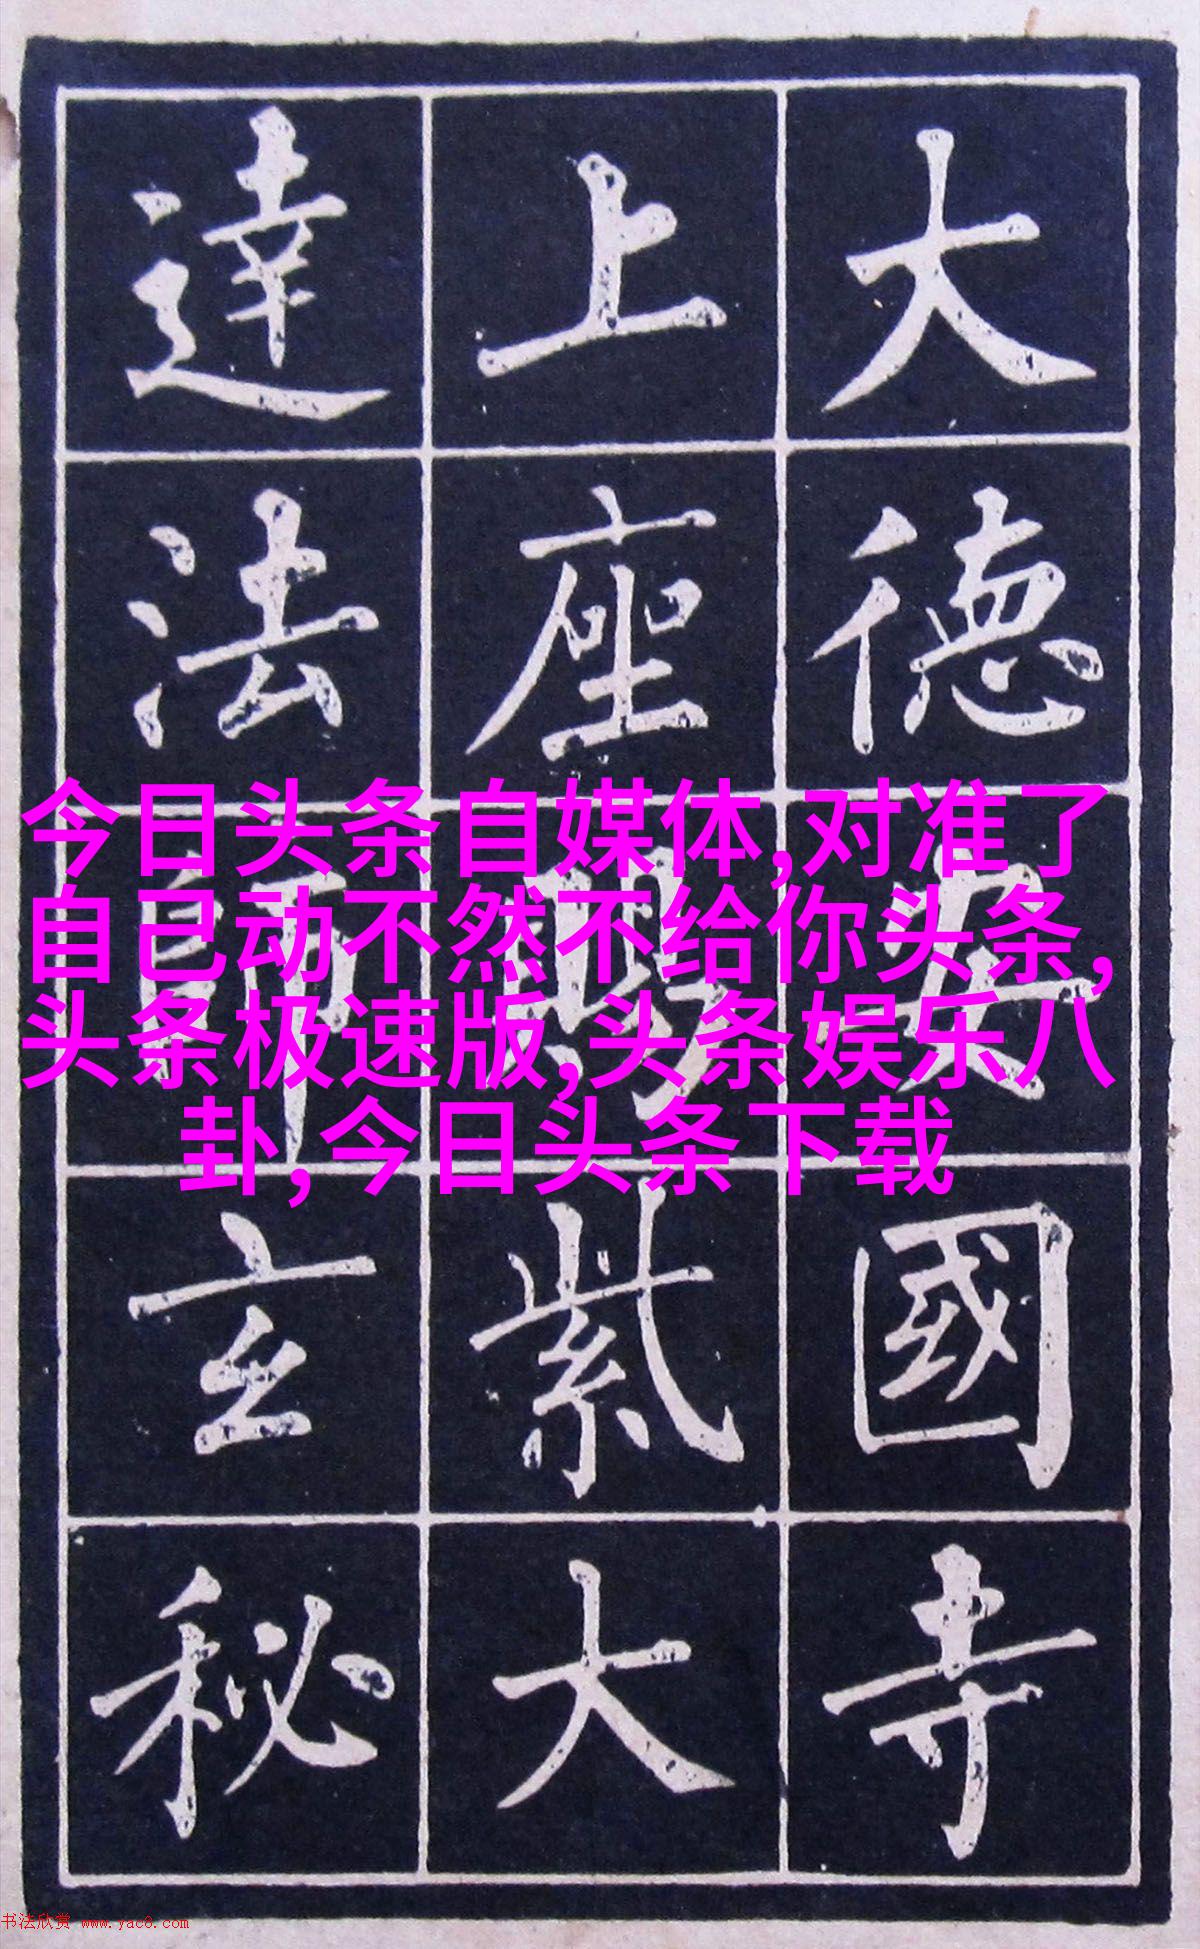 大德安國寺
上座賜紫大
達法師玄秘
今日头条自媒体,对准了
自己动不然不给你头条,
头条极速版,头条娱乐八
卦,今日头条下载
书法欣赏 www.yac8.com